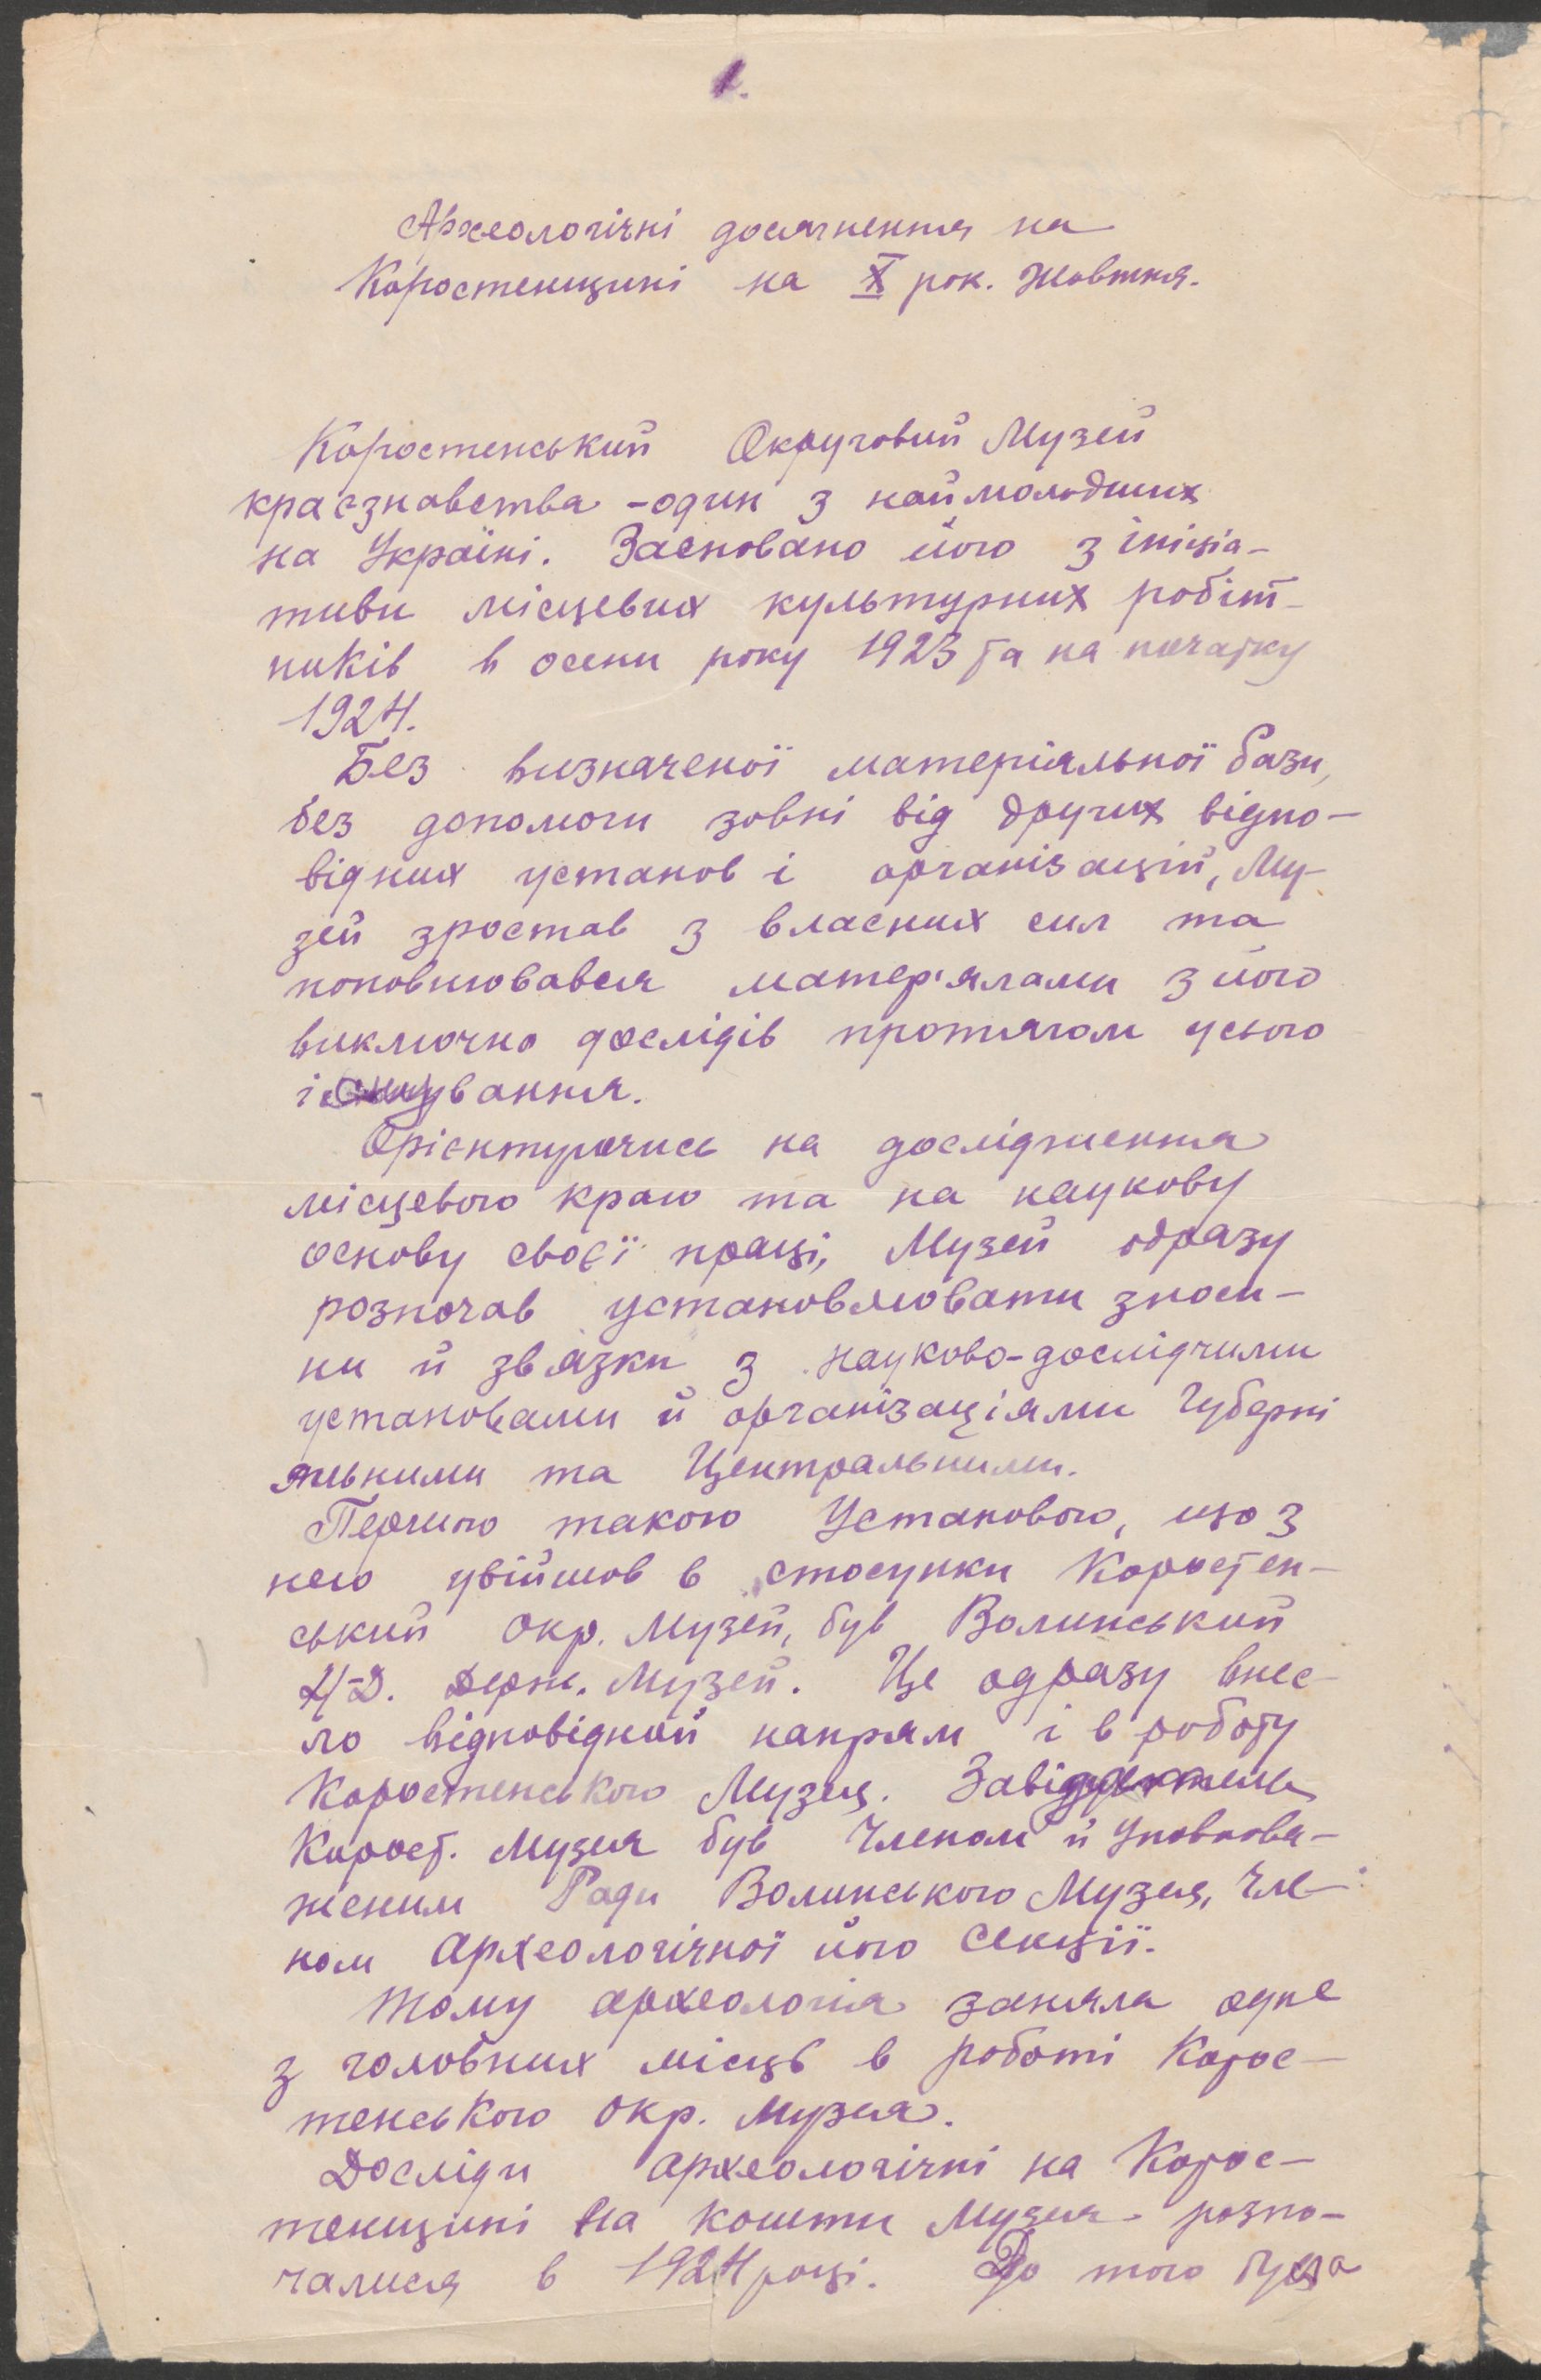 1.
Археологічні досягнення на
Коростенщині на X рок. Жовтня.
Коростенський Округовий Музей
краєзнавства - один з наймолодших
на Україні. Засновано його з ініціа-
тиви місцевих культурних робіт-
ників в осени року 1923 та на початку
1924.
Без визначеної матеріяльної бази,
без допомоги зовні від других відпо-
відних установ і організацій, Му-
зей зростав з власних сил та
поповнювався матер'ялами з його
виключно дослідів протягом усього
існування.
Орієнтуючись на дослідження
місцевого краю та на наукову
основу своєї праці, Музей одразу
розпочав установлювати зноси-
ни й звязки з науково-дослідчими
установами й організаціями Губерні
яльними та Центральними.
Першою такою Установою, що з
нею увійшов в стосунки Коростен-
ський Окр. Музей, був Волинський
Н-Д. Держ. Музей. Це одразу внес-
ло відповідний напрям і в роботу
Коростенського Музея. Завідуватель
Корост. Музея був Членом й Уповнова-
женим Ради Волинського Музея, Чле-
ном Археологічної його Секції.
Тому археологія заняла одне
з головних місць в роботі Корос-
тенського Окр. Музея.
Досліди археологічні на Корос-
тенщині на кошти Музея розпо-
чалися в 1924 році. До того була